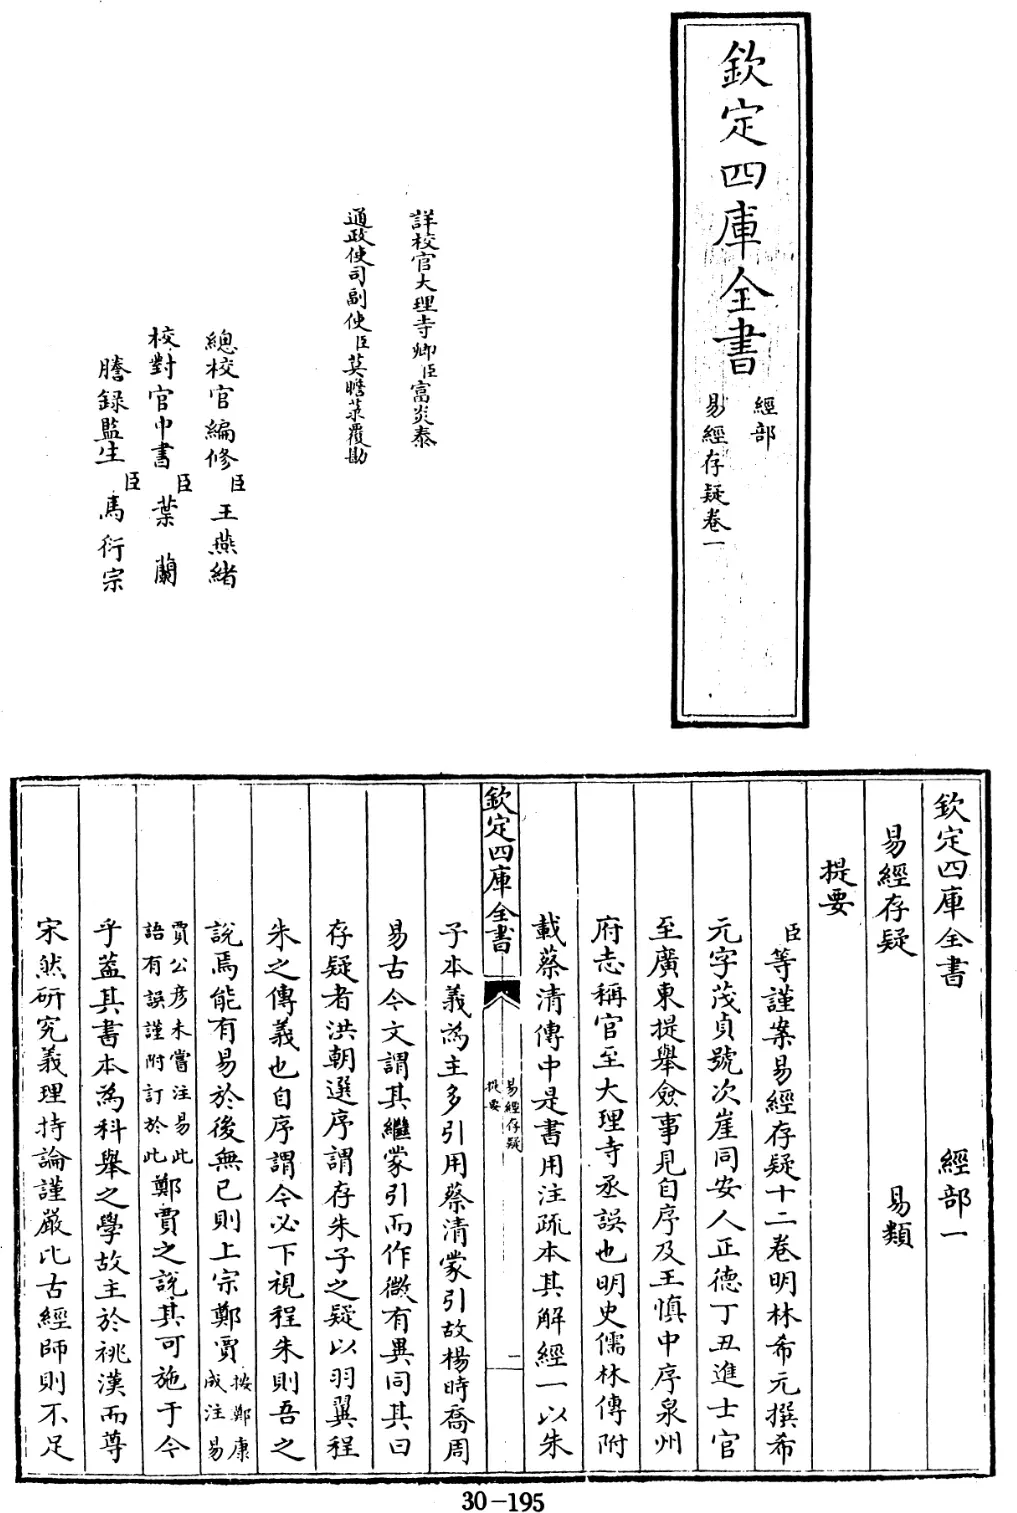 欽定四庫全書
經部
易經存疑卷一
詳校官大理寺卿臣富炎泰
通政使司副使臣莫瞻菉覆勘
總校官編修臣王燕緒
校對官中書臣葉蘭
謄録監生臣馬衍宗
欽定四庫全書 經部一
易經存疑 易類
提要
臣等謹案易經存疑十二卷明林希元撰希
元字茂貞號次崖同安人正德丁丑進士官
至廣東提舉僉事見自序及王慎中序泉州
府志稱官至大理寺丞誤也明史儒林傳附
載蔡清傳中是書用注疏本其解經一以朱
欽定四庫全書
易經存疑
提要
二
子本義為主多引用蔡清蒙引故楊時喬周
易古今文謂其繼蒙引而作微有異同其曰
存疑者洪朝選序謂存朱子之疑以羽翼程
朱之傳義也自序謂今必下視程朱則吾之
說焉能有易於後無已則上宗鄭賈按鄭康成注易
賈公彦未嘗注易此語有誤謹附訂於此鄭賈之說其可施于今
乎葢其書本為科舉之學故主於祧漢而尊
宋然研究義理持論謹嚴比古經師則不足
30-195